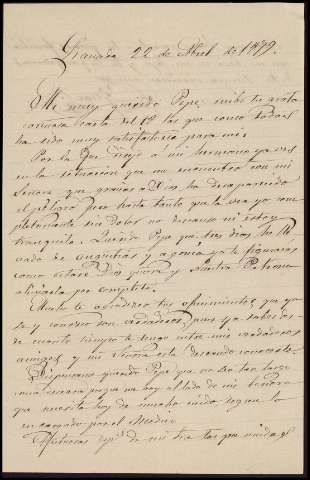 Granada 22 de Abril de 1879.
Mi muy querido Pepe, recibi tu grata
cariñosa carta del 18 las que como todas
ha sido muy satisfactoria para mi.
Por la que traje a mi hermano ya ves
en la situacion que me encuentro con mi
Señora que gracias a Dios ha desaparecido
el peligro pero hasta tanto que la vea yo com
pletamente sin dolor no descanso ni estoy
tranquilo. Querido Pepe que tres dias he lle
vado de angustias y agonia ya te figuraras
como estare. Dios quiera y nuestra Patrona
aliviarla por completo.
Mucho te agradezco tus ofrecimientos que ya
se y conozco son verdaderos, pues ya sabes des
de cuanto tiempo te tengo entre mis verdaderos
amigos y mi Señora esta deseando conocerte.
Dispensame querido Pepe que no sea tan largo
porque me hoy al lado de mi Señora
que necesita hoy de mucho cuidado segun lo
encargado por el Medico
de mi tia las que unidas